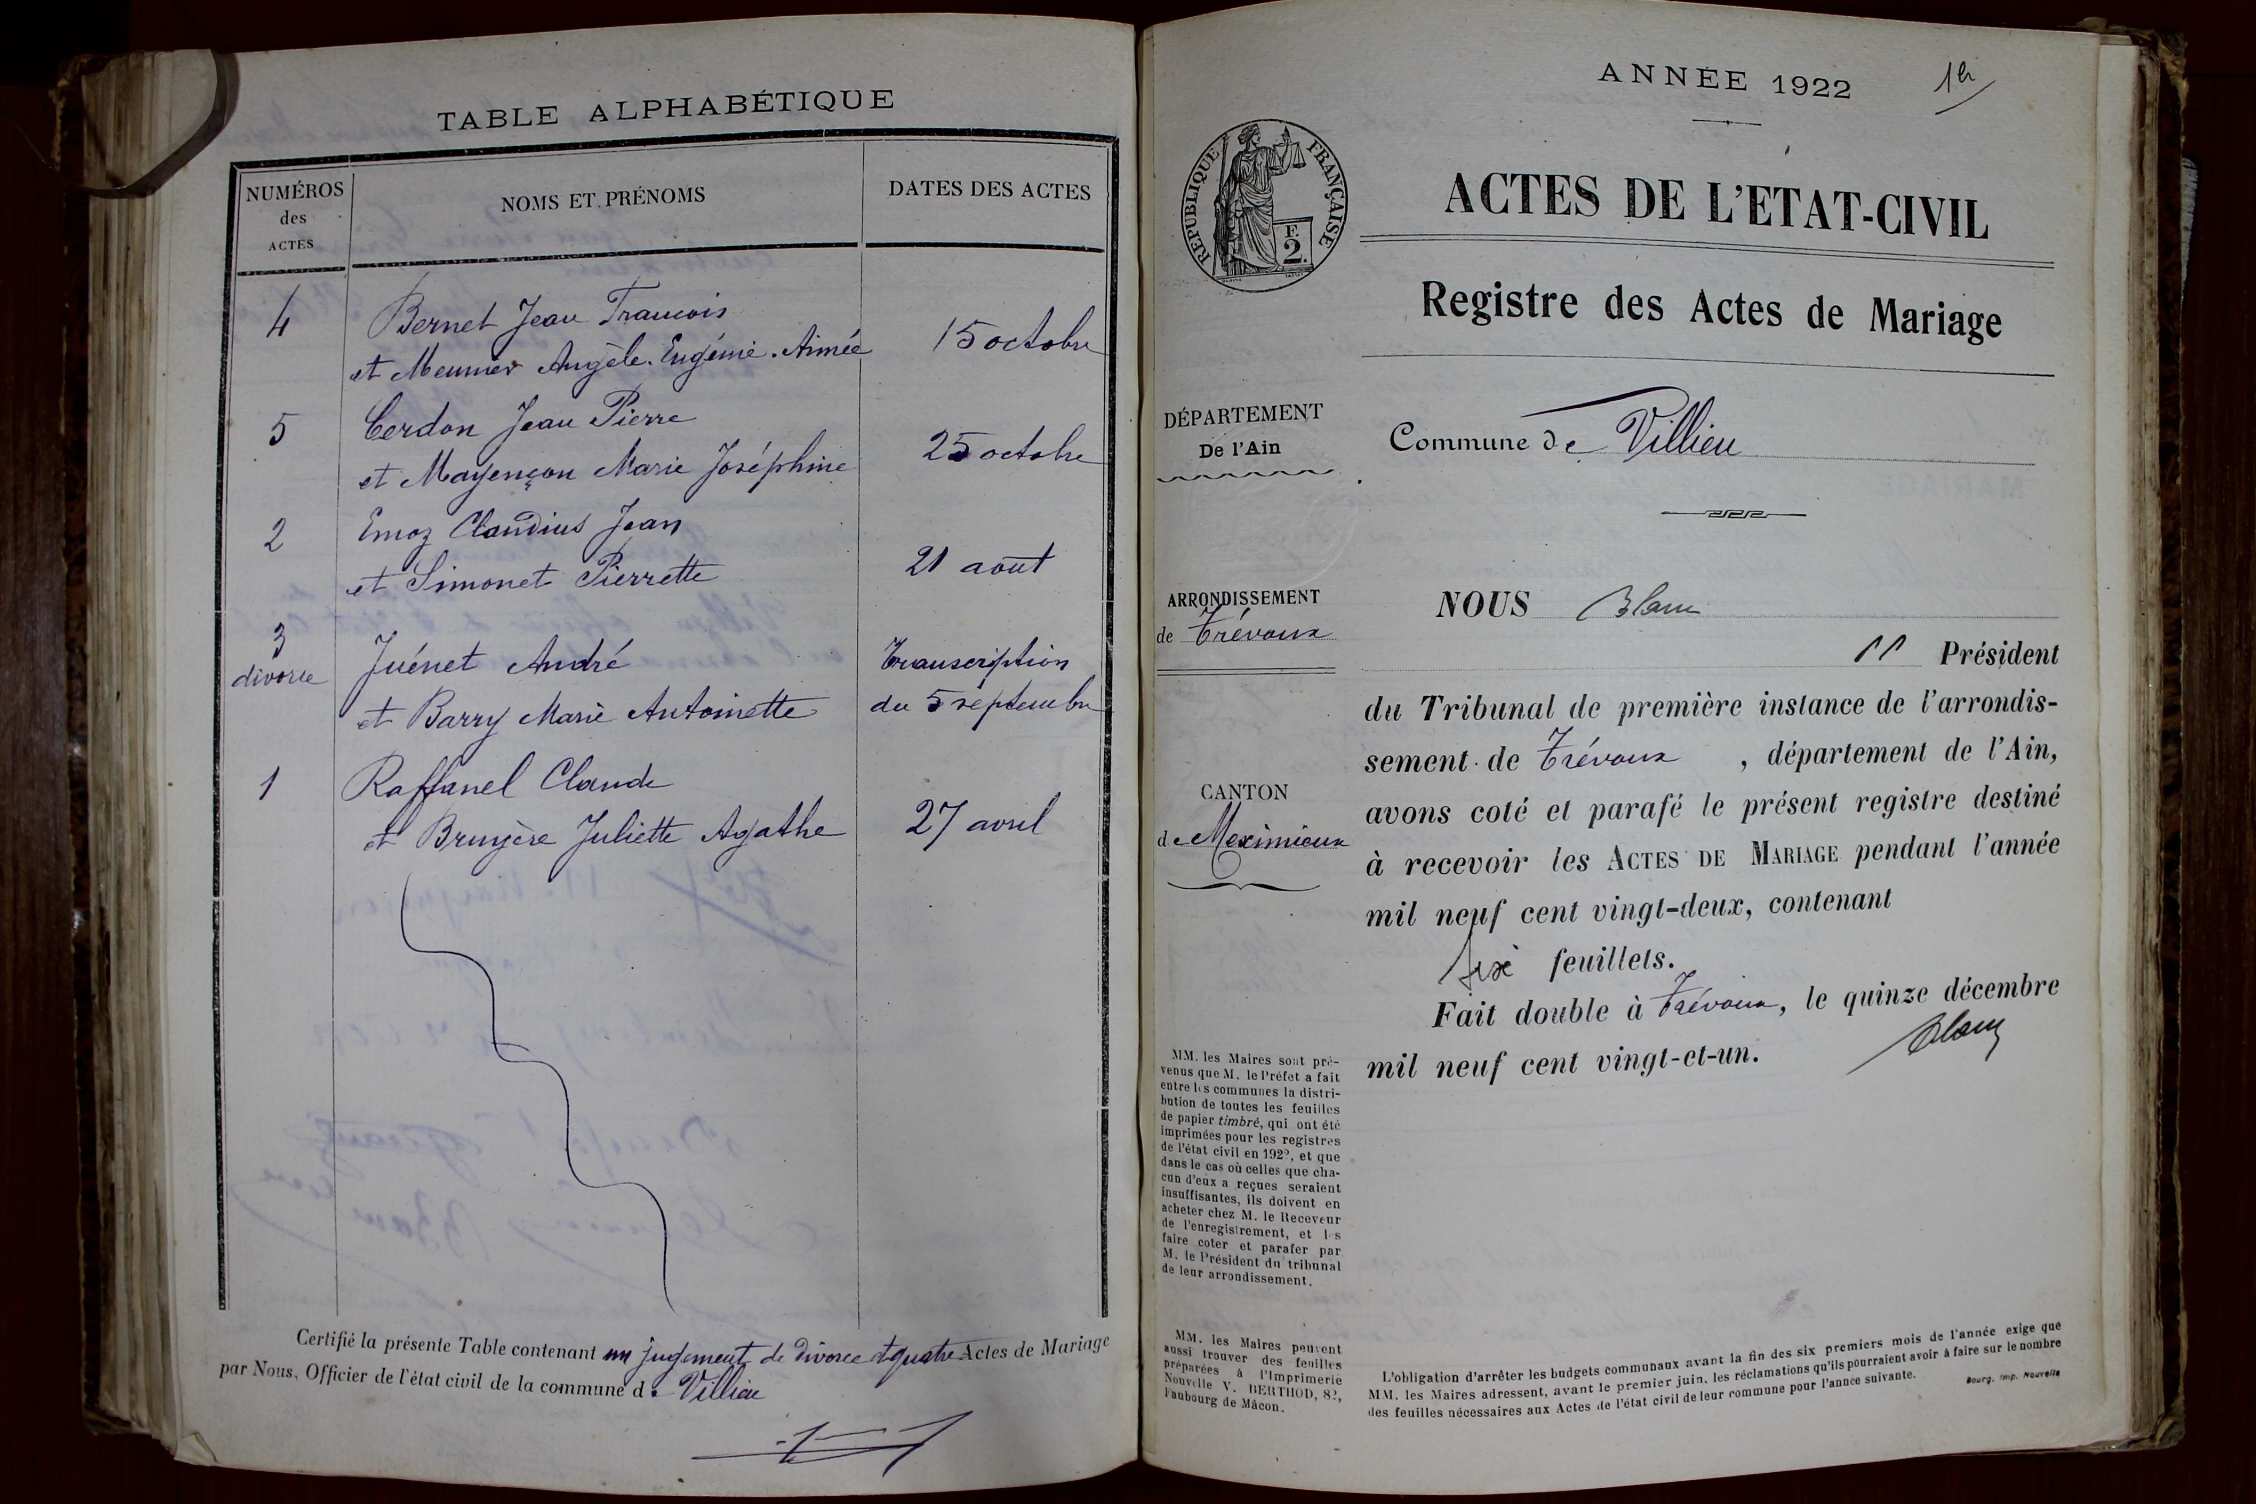 TABLE ALPHABÉTIQUE
NUMÉROS
des
ACTES
NOMS ET PRÉNOMS
DATES DES ACTES
4
Bernet Jean Francois
et Meunier Angèle. Eugénie. Aimée
15 octobre
5
Cerdon Jean Pierre
et Mayençon Marie Joséphine
25 octobre
2
Emoz Claudius Jean
et Simonet Pierrette
21 août
3
divorce
Juénet André
et Barry Marie Antoinette
Transcription
du 5 septembre
1
Raffanel Claude
et Bruyère Juliette Agathe
27 avril
Certifié la présente Table contenant un jugement de divorce et quatre Actes de Mariage
par Nous, Officier de l'état civil de la commune de Villieu
ANNÉE 1922
1er
RÉPUBLIQUE FRANÇAISE
F.
2.
ACTES DE L'ETAT-CIVIL
Registre des Actes de Mariage
DÉPARTEMENT
De l'Ain
Commune de Villieu
ARRONDISSEMENT
de Trévoux
NOUS Blanc
Président
du Tribunal de première instance de l'arrondis-
sement de Trévoux , département de l'Ain,
avons coté et parafé le présent registre destiné
à recevoir les ACTES DE MARIAGE pendant l'année
mil neuf cent vingt-deux, contenant
six feuillets.
Fait double à Trévoux, le quinze décembre
mil neuf cent vingt-et-un.
Blanc
CANTON
de Meximieux
MM. les Maires sont pré-
venus que M. le Préfet a fait
entre les communes la distri-
bution de toutes les feuilles
de papier timbré, qui ont été
imprimées pour les registres
de l'état civil en 1922, et que
dans le cas où celles que cha-
cun d'eux a reçues seraient
insuffisantes, ils doivent en
acheter chez M. le Receveur
de l'enregistrement, et les
faire coter et parafer par
M. le Président du tribunal
de leur arrondissement.
MM. les Maires peuvent
aussi trouver des feuilles
préparées à l'Imprimerie
Nouvelle V. BERTHOD, 82,
Faubourg de Mâcon.
L'obligation d'arrêter les budgets communaux avant la fin des six premiers mois de l'année exige que
MM. les Maires adressent, avant le premier juin, les réclamations qu'ils pourraient avoir à faire sur le nombre
des feuilles nécessaires aux Actes de l'état civil de leur commune pour l'année suivante.
Bourg. Imp. Nouvelle